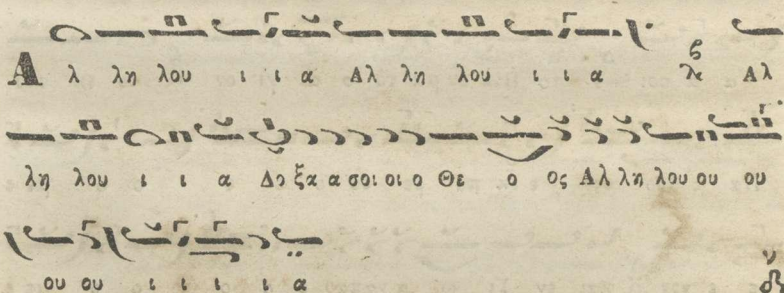 Α λ λη λου ι ι α Αλ λη λου ι ι α Αλ
λη λου ι ι α Δο ξα α σοι οι ο Θε ο ος Αλ λη λου ου ου
ου ου ι ι ι ι α